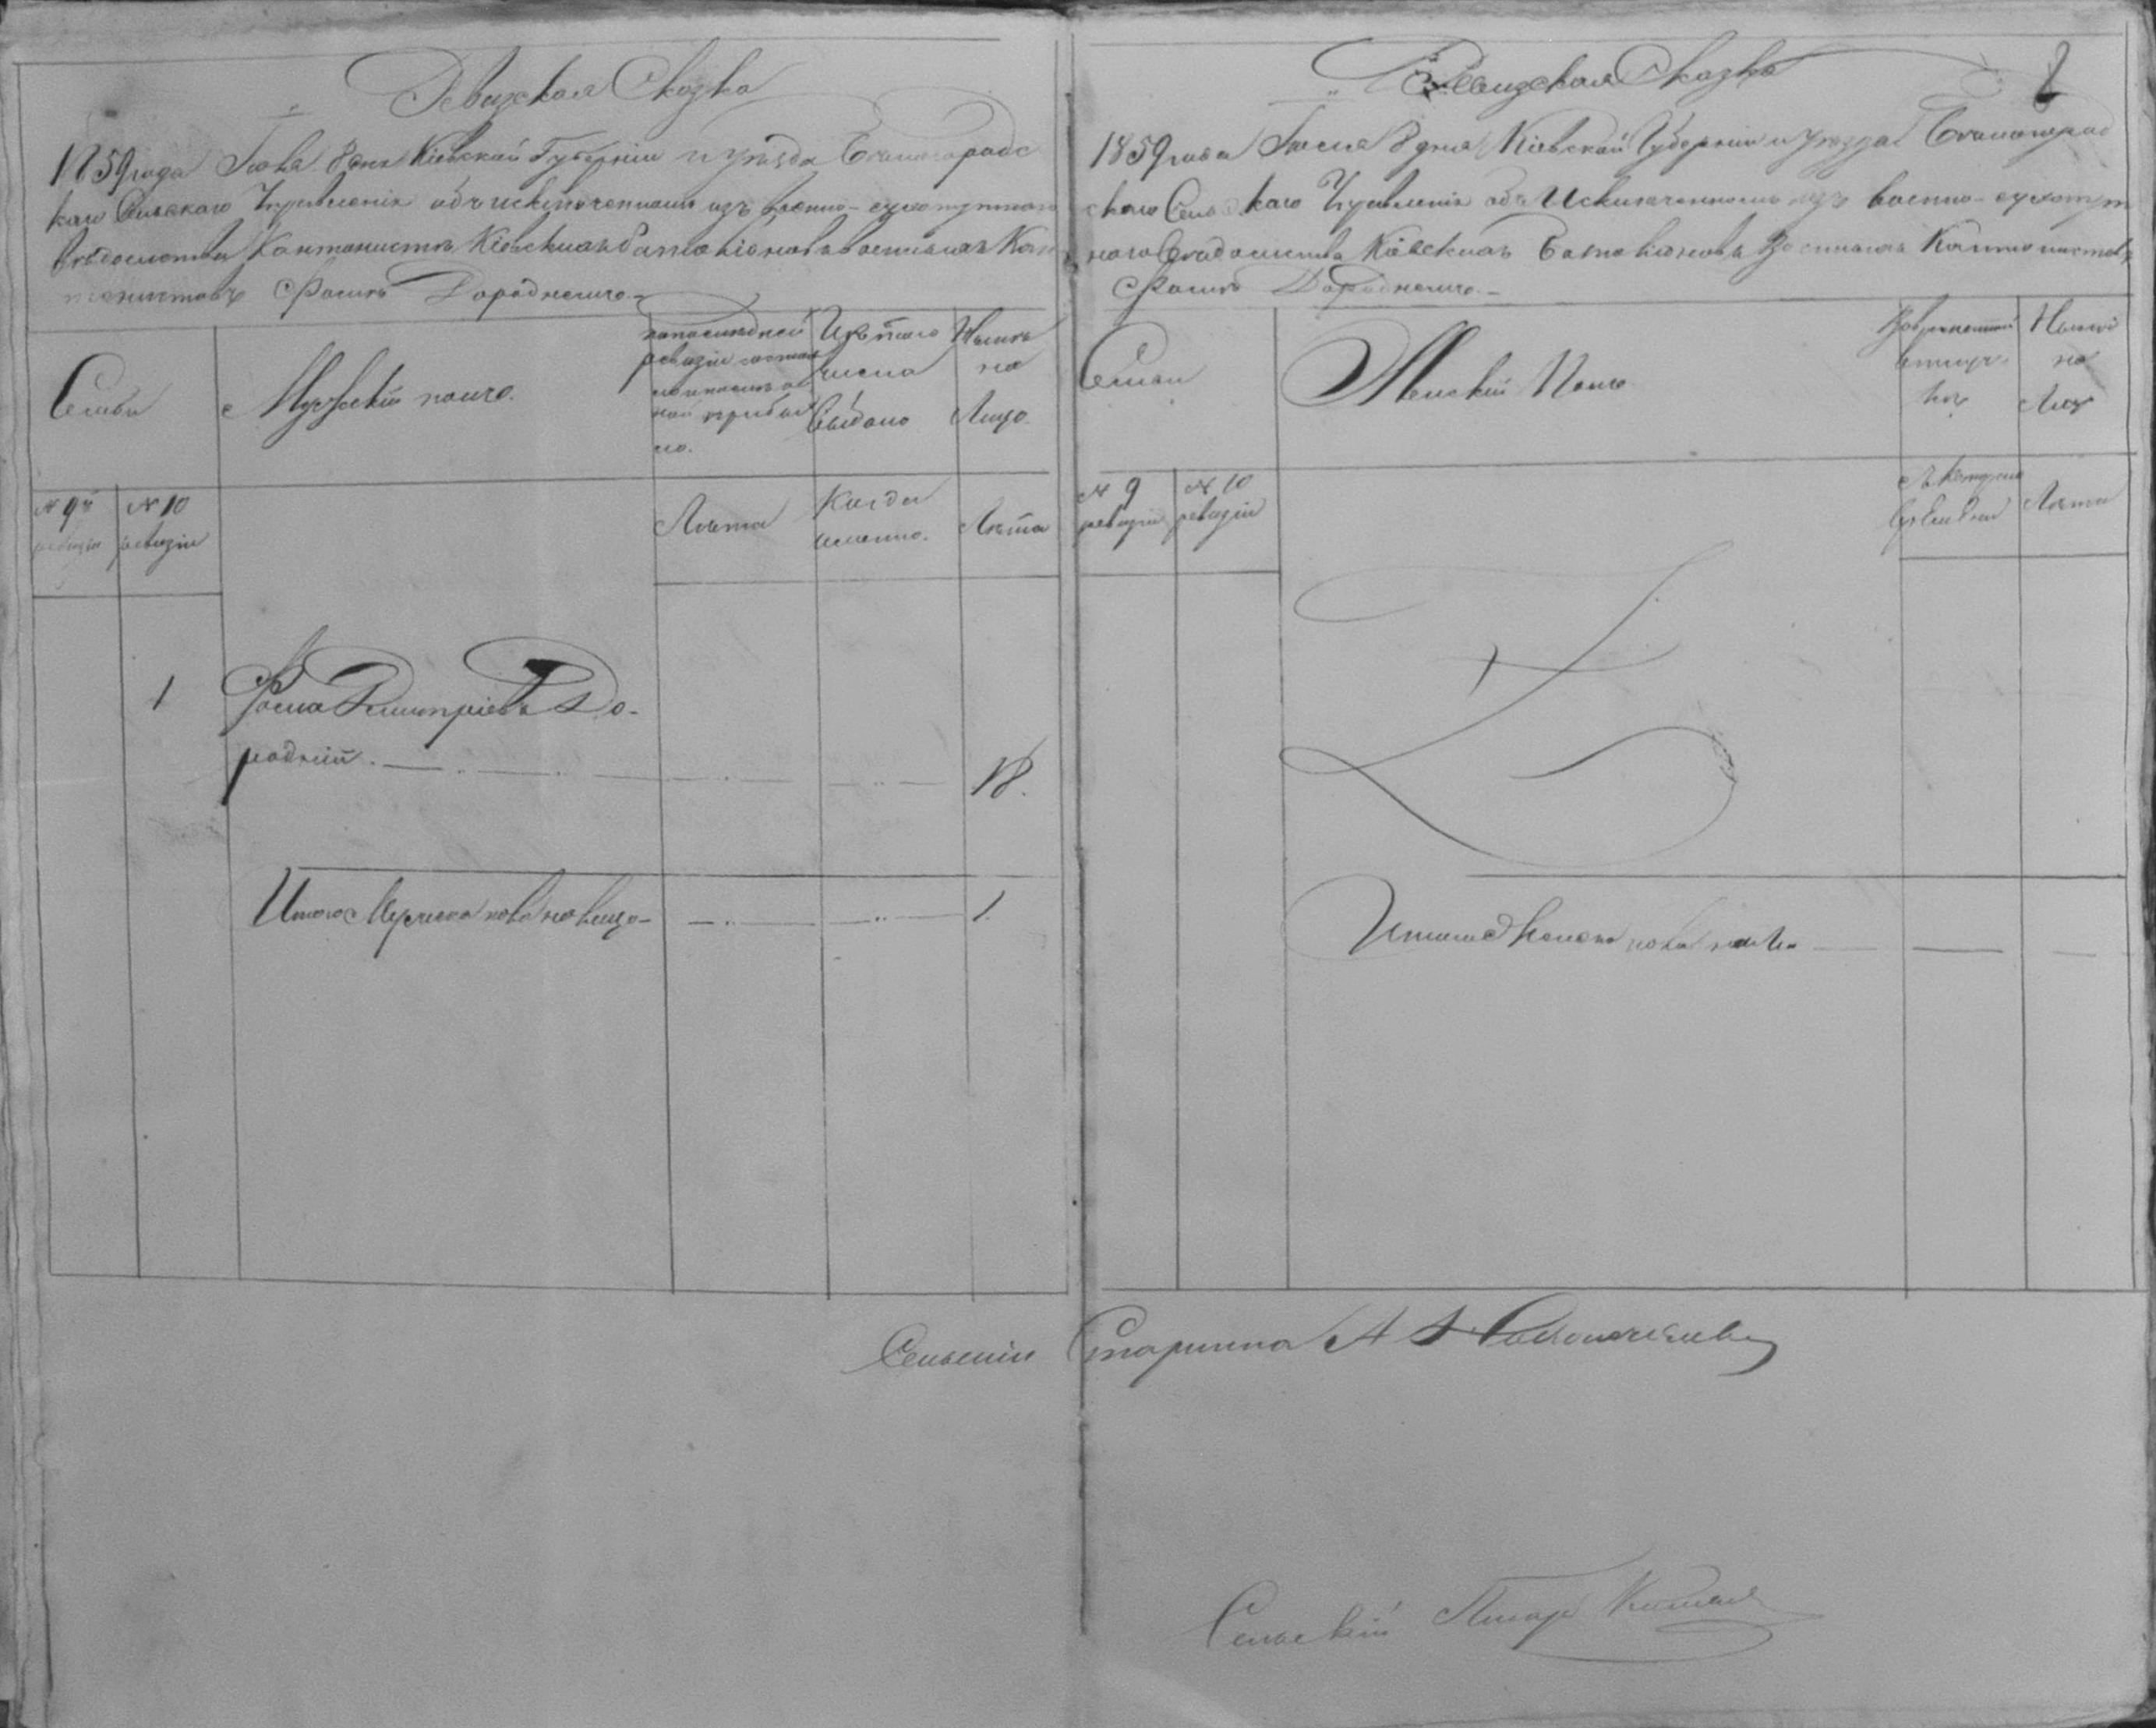 Ревизская Сказка
1859 года Іюня 8 дня Кіевской Губерніи и уѣзда
каго Сельскаго Управленія объ исключенномъ изъ военно-сухопутнаго
вѣдомства Кантонистѣ Кіевскихъ баталіоновъ военныхъ Кан-
тонистовъ Фомѣ Дороднемъ.
Семьи
Мужескій полъ.
по послѣдней
ревизіи состоя
ло и послѣ о
ной прибы
ло.
Изъ того
числа
выбыло
Нынѣ
на
Лицо.
№ 9й
ревизіи
№ 10
ревизіи
Лѣта
Когда
именно.
Лѣта
1
Фома Дмитріевъ До-
родній.
18.
Итого Мужеска пола на лицо
1.
Ревизская Сказка
8
1859 года 8 дня Кіевской Губерніи и уѣзда
скаго Сельскаго Управленія объ Исключенномъ изъ военно-сухопут
наго вѣдомства Кіевскихъ Баталіоновъ Военныхъ Кантонистовъ
Фомѣ Дороднемъ.
Семьи
Женскій Полъ
Во временной
отлуч-
кѣ
Нынѣ
на
Лицо
№ 9
ревизіи
№ 10
ревизіи
Съ котораго
времени
Лѣта
Итого Женска пола
Сельскій Старшина
Сельскій Писарь